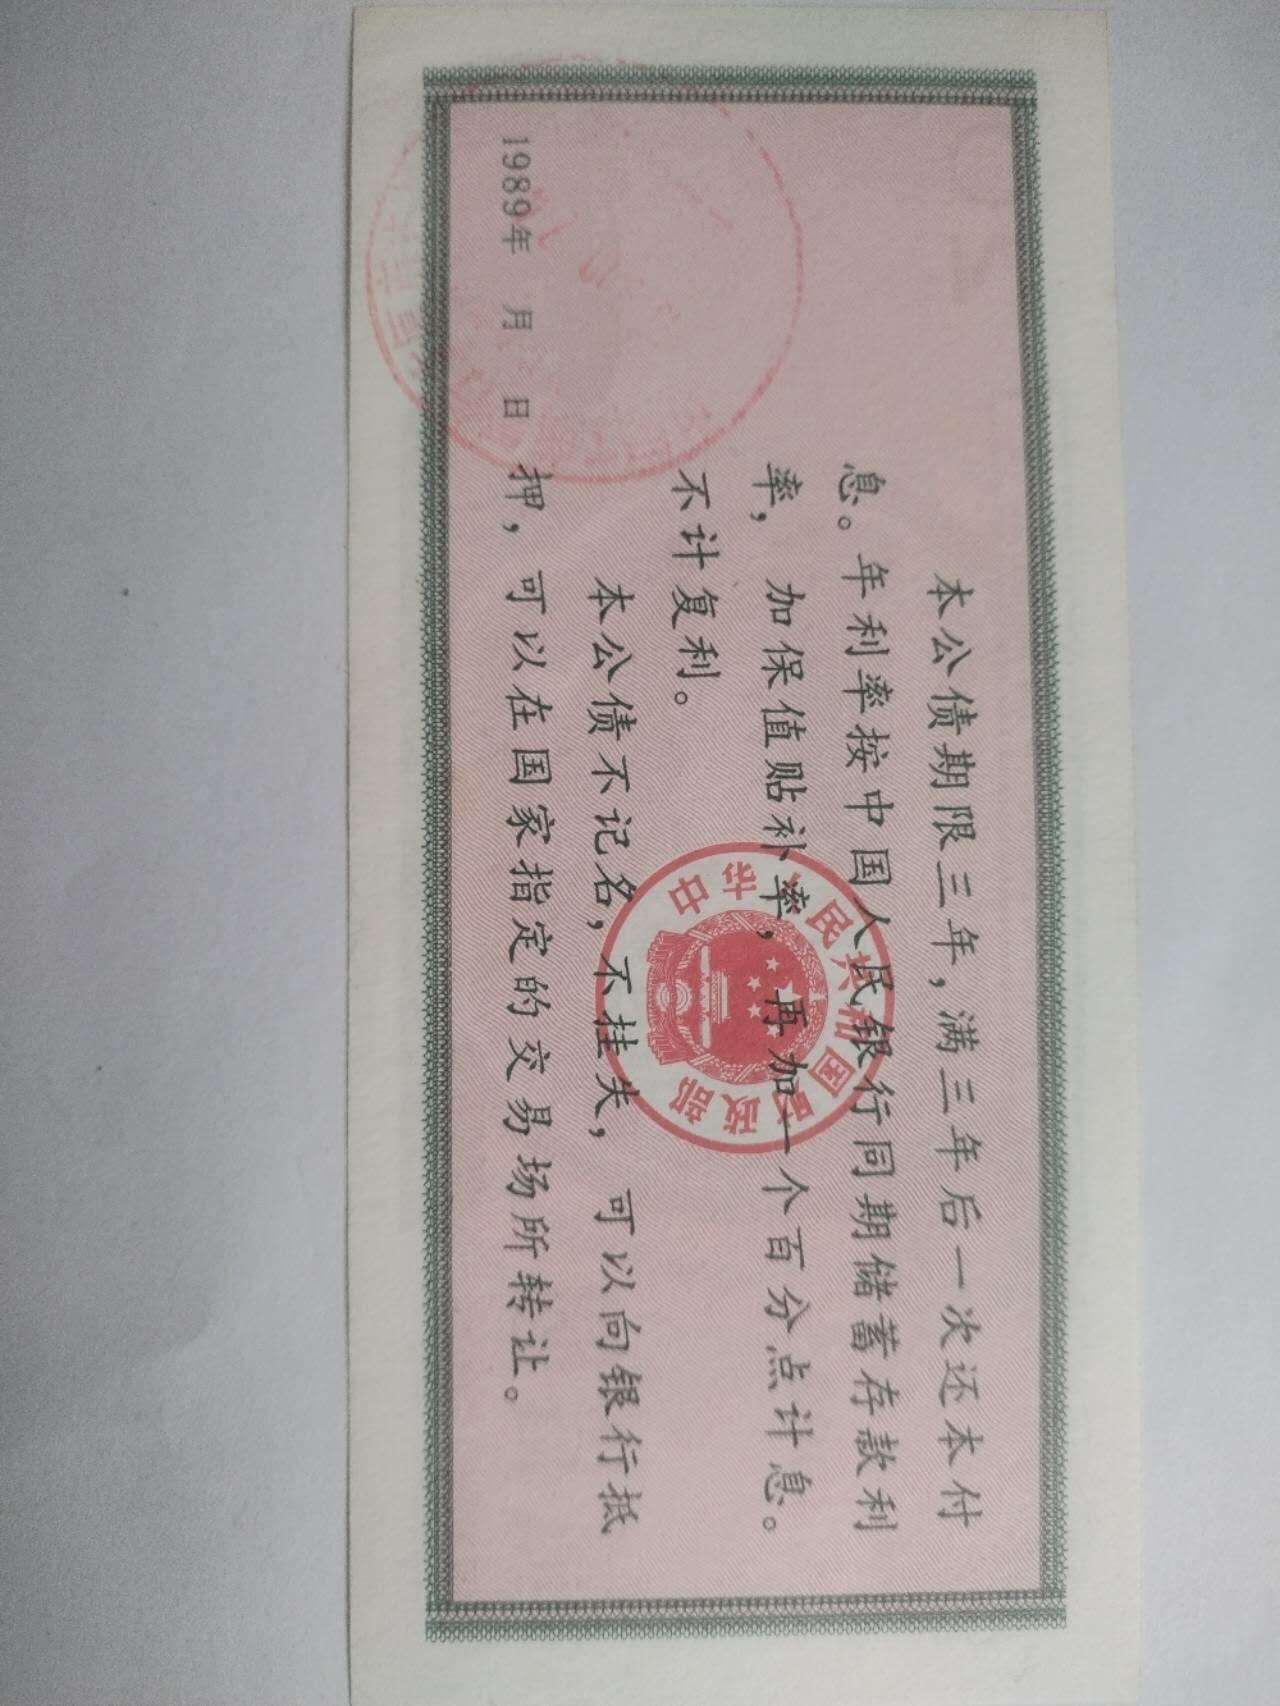 本公债期限三年,满三年后一次还本付
息。年利率按中国人民银行同期储蓄存款利
率,加保值贴补率,再加一个百分点计息。
不计复利。
本公债不记名,不挂失,可以向银行抵
押,可以在国家指定的交易场所转让。
中华人民共和国财政部
1989年 月 日